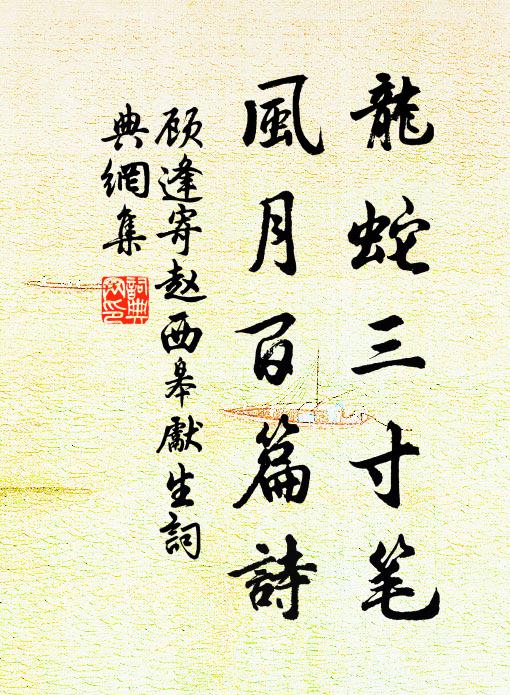 龍蛇三寸笔
風月百篇詩
顾逢寄赵西皋獻生詞
典網集
詞典